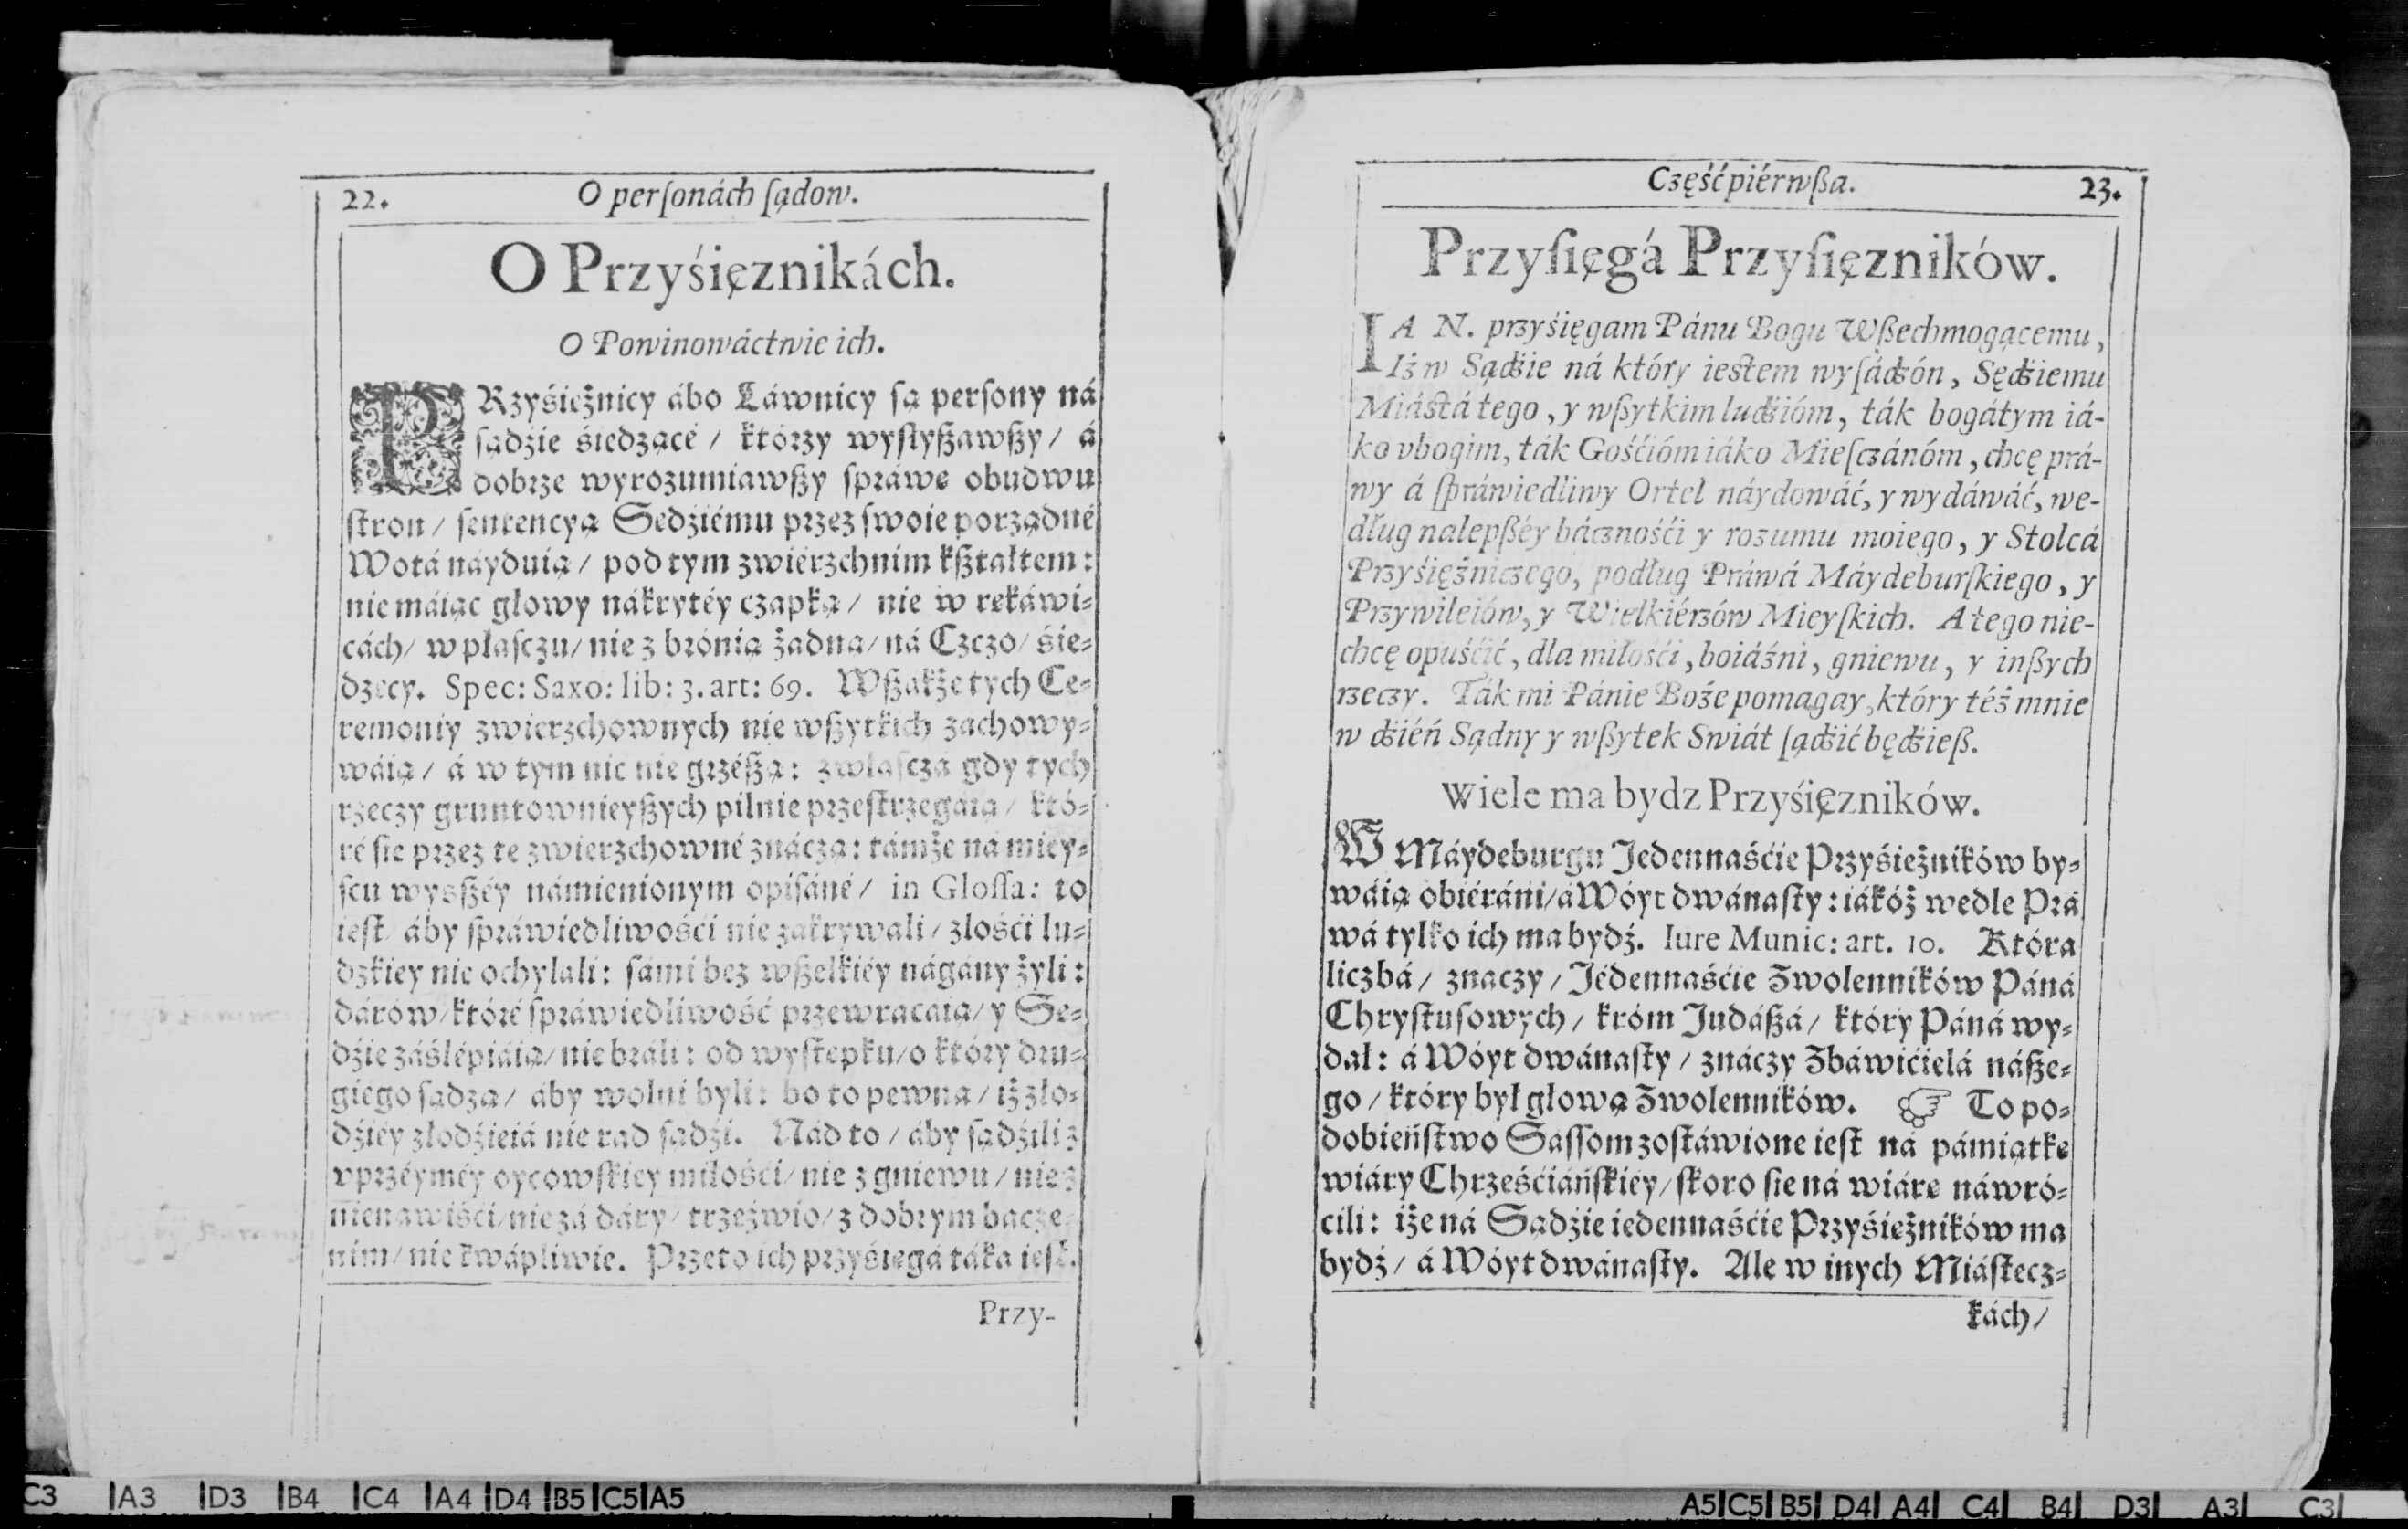 22. O perſonách ſądow.
O Przyśięznikách.
O Powinowáctwie ich.
PRzyśiężnicy ábo Láwnicy ſą perſony ná
ſądźie śiedzącé / którzy wyſłyßawßy / á
dobrze wyrozumiawßy ſpráwę obudwu
ſtron / ſentencyą Sędźiému przez ſwoie porządné
Wotá náyduią / pod tym zwiérzchním kßtałtem:
nie máiąc głowy nákrytéy czapką / nie w rękáwi-
cách / w płaſczu / nie z brónią żadną / ná Czczo / śie-
dzęcy. Spec: Saxo: lib: 3. art: 69. Wßákże tych Ce-
remoniy zwierzchownych nie wßytkich záchowy-
wáią / á w tym nic nie grzéßą: zwłaſczá gdy tych
rzeczy gruntownieyßych pilnie przeſtrzegáią / któ-
ré ſię przez te zwierzchowné znáczą: támże ná miey-
ſcu wysßéy námienionym opiſáné / in Gloſſa: to
ieſt / áby ſpráwiedliwośći nie zakrywali / złośći lu-
dzkiey nie ochylali: ſámi bez wßelkiéy nágány żyli:
dárów / które ſpráwiedliwość przewracáią / y Sę-
dźie záślépiáią / nie bráli: od wyſtępku / o który dru-
giégo ſądzą / áby wolni byli: bo to pewna / iż zło-
dźiéy złodźieiá nie rad ſądźi. Nád to / áby ſądźili z
vprzéyméy oycowſkiey miłośći / nie z gniewu / nie z
nienawiśći / nie zá dáry / trzeźwio / z dobrym bacze-
nim / nie kwápliwie. Przeto ich przyśięgá táka ieſt.
Przy-
Część piérwßa. 23.
Przyſięgá Przyſięzników.
IA N. przyśięgam Pánu Bogu Wßechmogącemu,
Iż w Sądźie ná który ieſtem wyſádzón, Sędźiemu
Miáſtá tego, y wßytkim ludźióm, ták bogátym iá-
ko vbogim, ták Gośćióm iáko Mieſczánóm, chcę prá-
wy á ſpráwiedliwy Ortel náydowáć, y wydáwáć, we-
dług nalepßéy bácznośći y rozumu moiego, y Stolcá
Przyśiężniczego, podług Práwá Máydeburſkiego, y
Przywileiów, y Wielkiérzów Mieyſkich. A tego nie-
chcę opuśćić, dla miłośći, boiáźni, gniewu, y inßych
rzeczy. Ták mi Pánie Boże pomagay, który téż mnie
w dźiéń Sądny y wßytek Swiát ſądźić będźieß.
Wiele ma bydz Przyśięzników.
W Máydeburgu Jedennaśćie Przyśiężników by-
wáią obiéráni / á Wóyt dwánaſty: iákóż wedle Prá
wá tylko ich ma bydź. Iure Munic: art. 10. Która
liczbá / znaczy / Jédennaśćie Zwolenników Páná
Chryſtuſowych / króm Judáßá / który Páná wy-
dał: á Wóyt dwánaſty / znáczy Zbáwićielá náße-
go / który był głową Zwolenników. ☞ To po-
dobieńſtwo Sáſſom zoſtáwione ieſt ná pámiątkę
wiáry Chrześćiáńſkiéy / ſkoro ſię ná wiárę náwró-
cili: iże ná Sądźie iedennaśćie Przyśiężników ma
bydź / á Wóyt dwánaſty. Ale w inych Miáſtecz-
kách /
C3 A3 D3 B4 C4 A4 D4 B5 C5 A5
A5 C5 B5 D4 A4 C4 B4 D3 A3 C3